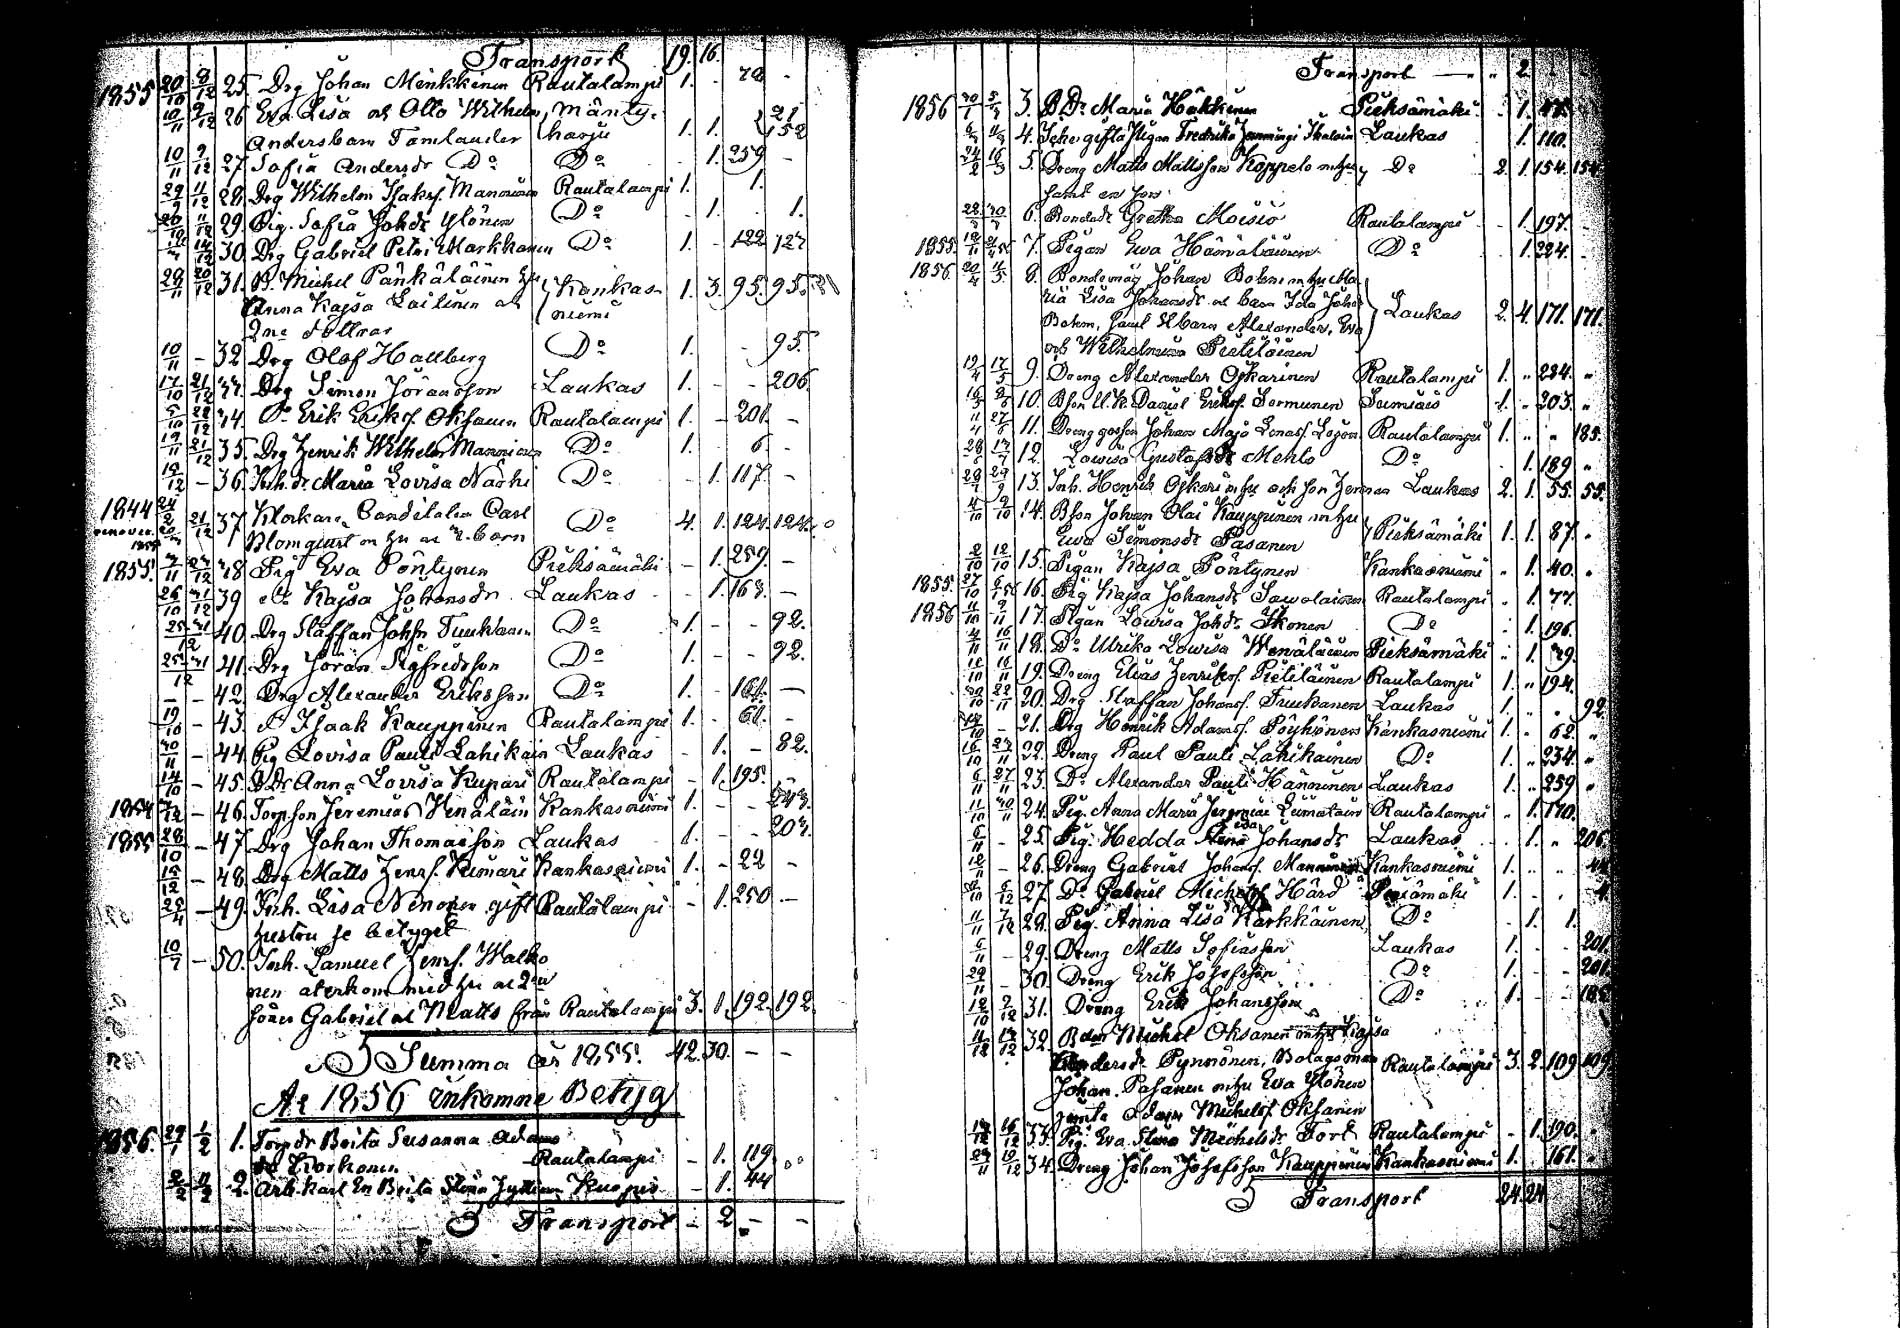 Transport 19. 16.
1855 20/10 8/12 25. Drg Johan Minkkinen Rautalampi 1. - 72 -
10/11 9/12 26 Eva Lisa och Otto Wilhelm Mänty-
Andersbarn Tomlander harju 1. 1. 21 152
10/11 9/12 27 Sofia Andersdr Do Do - 1. 259 -
29/9 11/12 28 Drg Wilhelm Isaksf. Manninen Rautalampi 1. 1.
11/12 29. Pig. Sofia Johdr Ylönen Do - 1. . 1.
14/12 30. Drg Gabriel Petri Markkanen Do 1. - 122 127
29/11 20/12 31. B. Michel Pänkäläinen
Anna Kajsa Laitinen och Kankas- 1. 3. 95. 95.
2ne döttrar niemi
10/11 - 32 Drg Olof Hallberg Do 1. - 95.
17/10 21/12 33. Drg Simon Jöransson Laukas 1. - - 206
5/10 22/12 34. Do Erik Eriksf. Oksanen Rautalampi 1. - 201. -
19/11 21/12 35. Drg Henrik Wilhelm Manninen Do 1. 6. -
12/12 - 36. Inh. dr Maria Lovisa Närhi Do - 1. 117. -
1844 24/2 21/12 37 Klockare Canditaten Carl
Blomqvist m hu och 3. barn Do 4. 1. 124. 124.
1855. 7/11 27/12 38 Pig Eva Pöntynen Pieksämäki - 1. 259. -
26/10 31/12 39 Do Kajsa Johansdr. Laukas - 1. 163. -
25/12 31 40. Drg Staffan Johsn Tuukkanen Do 1. - - 92.
25/12 31 41. Drg Jöran Sigfridsson Do 1. - - 92.
- - 42. Drg Alexander Eriksson Do 1. - 161. -
19/10 - 43. Do Isaak Kauppinen Rautalampi 1. - 61. -
30/11 - 44. Pig Lovisa Pauli Lahikain Laukas - 1. - 82.
14/10 - 45. BDr Anna Lovisa Kupari Rautalampi - 1. 195.
1854 7/12 - 46. Torpson Jeremias Venäläin Kankasniemi 1. - - 243.
1855 28/10 - 47. Drg Johan Thomasson Laukas 1. - - 203.
15/12 - 48. Drg Matts Henrf. Kumari Kankasniemi 1. - 22 -
25/4 - 49. Inh. Lisa Ninonen gift Rautalampi - 1. 250 -
hustru se betyget
10/7 - 50. Inh. Samuel Henrf. Walko
nen återkom med hu och 2ne
söner Gabriel och Matts från Rautalampi 3. 1. 192. 192.
Summa år 1855. 42. 30. - -
År 1856 inkomne Betyg
1856. 29/1 1/2 1. Torpdr Brita Susanna Adams
dr Korkonen Rautalampi - 1. 119.
11/2 2. Arb. karl En Brita Stina Kuopio - 1. 44
Transport - 2 - -
Transport - " " 2.
1856 30/1 3. B Dr Maria Häkkinen Pieksämäki . 1. 47.
4. Icke gifta Pigan Fredrika Laukas 1. 110.
24/2 16/3 5. Dreng Matts Mattsson Koppelo m hu Do 2. 1. 154. 154
samt en son
6. Bondedr Gretha Moisio Rautalampi . 1. 197.
1855 7. Pigan Ewa Hämäläinen Do . 1. 224.
1856. 8. Bondemåg Johan Bohm m hu Ma-
ria Lisa Johansdr och barn Ida Johs
Bohm, samt St barn Alexander, Eva Laukas 2. 4. 171. 171.
och Wilhelmina Pietiläinen
12/4 17/5 9. Dreng Alexander Oskarinen Rautalampi 1. " 224. "
10. Bson U. K. Daniel Eriksf. Sormunen Sumiais 1. " 203. "
11. Drenggosson Johan Majo Lenasf. Rautalampi 1. " " 185.
12. Lowisa Gustafsdr Mehto Do . 1. 189 "
13. Inh. Henrik m hu och son Herman Laukas 2. 1. 55. 55.
4/10 9/10 14. Bson Johan Olai Kauppinen m hu
Ewa Simonsdr Pasanen Pieksämäki 1. 1. 87. "
2/10 12/10 15. Pigan Kajsa Pöntynen Kankasniemi " 1. 40. "
1855. 16. Pig Kajsa Johansdr Sawolainen Rautalampi . 1. 77.
1856 11/10 9/11 17. Pigan Lowisa Johdr. Ikonen Do . 1. 196.
4/11 16/11 18. Do Ulrika Lowisa Wenäläinen Pieksämäki " 1. 39.
19. Dreng Elias Henriksf. Pietiläinen Rautalampi 1. " 194.
20. Drg Staffan Johansf. Tuukanen Laukas 1. . . 92.
21. Drg Henrik Adamsf. Pöyhönen Kankasniemi 1. . 62. "
22. Dreng Paul Pauli Lahikainen Do 1. . 234. "
6/11 27/11 23. Do Alexander Pauli Hänninen Laukas 1. . 259 "
11/10 30/11 24. Pig. Anna Maria Jeremiae Liimatain Rautalampi . 1. 170.
6/11 - 25. Pig. Hedda Johansdr Laukas . 1. " 206.
12/11 - 26. Dreng Gabriel Johansf. Manninen Kankasniemi 1. . . 44
6/12 27. Do Gabriel Michelsf Hård Pieksämäki 1. . . 4
11/11 7/12 28. Pig. Anna Lisa Karkkainen Do . 1. 1.
6/11 - 29. Dreng Matts Sofiasson Laukas 1. . . 201.
29/11 - 30. Dreng Erik Josefsson Do 1. . . 201.
12/10 2/12 31. Dreng Erik Johansson Do 1. . . 185
11/12 13/12 32. Bdn Michel Oksanen m hu Kajsa
Andersdr Pynnönen, Bolagsman Rautalampi 3. 2. 109 109
Johan Pasanen m hu Eva Ylönen
jemte Adam Michelsf. Oksanen
16/12 33. Pig. Eva Stina Michelsdr Fort Rautalampi . 1. 190.
29/11 19/12 34. Dreng Johan Josefsson Kauppinen Kankasniemi 1. . 161. "
Transport 24. 24